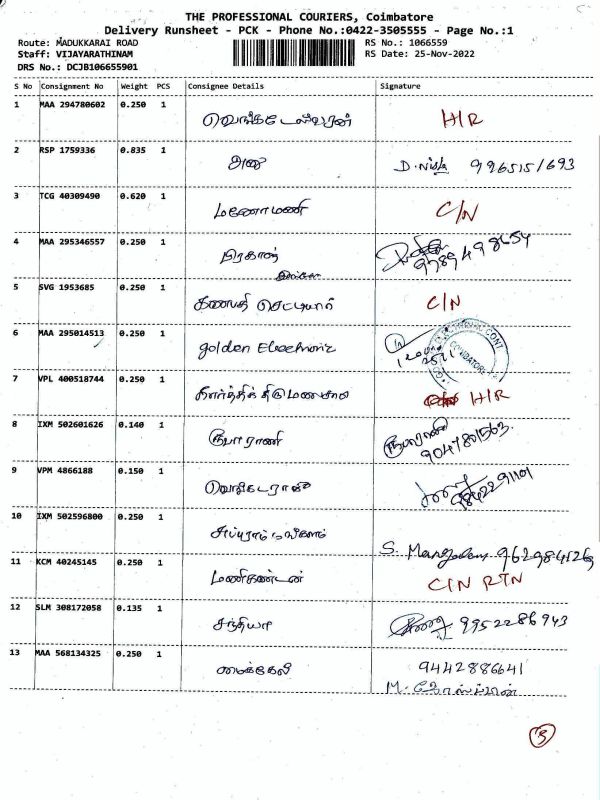 THE PROFESSIONAL COURIERS, Coimbatore
Delivery Runsheet - PCK - Phone No.:0422-3505555 - Page No.:1
Route: MADUKKARAI ROAD RS No.: 1066559
Staff: VIJAYARATHINAM RS Date: 25-Nov-2022
DRS No.: DCJB106655901
S No Consignment No Weight PCS Consignee Details Signature
1 MAA 294780602 0.250 1 வெங்கடேஸ்வரன் H/R
2 RSP 1759336 0.835 1 அனு D. Nisha 9965151693
3 TCG 40309490 0.620 1 மனோமணி C/N
4 MAA 295346557 0.250 1 பிரகாஷ் 9789498654
5 SVG 1953685 0.250 1 கணபதி செட்டியார் C/N
6 MAA 295014513 0.250 1 golden Electronic
COIMBATORE
7 VPL 400518744 0.250 1 கார்த்திக் H/R
8 IXM 502601626 0.140 1 ரூபாராணி ரூபாராணி
9047801563
9 VPM 4866188 0.150 1 9842291101
10 IXM 502596800 0.250 1 S. Mangalam 962984126
11 KCM 40245145 0.250 1 மணிகண்டன் C/N RTN
12 SLM 308172058 0.135 1 சந்தியா 9952286943
13 MAA 568134325 0.250 1 மைக்கேல் 9442886641
M.
13